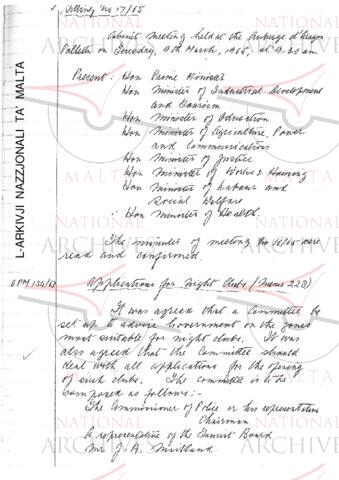 Meeting No 17/65
Cabinet Meeting held at the Auberge d'Aragon
Valletta on Tuesday, 9th March, 1965, at 9.30 am
Present: Hon Prime Minister
Hon Minister of Industrial Development
and Tourism
Hon Minister of Education
Hon Minister of Agriculture, Power
and Communications
Hon Minister of Justice
Hon Minister of Works & Housing
Hon Minister of Labour and
Social Welfare
: Hon Minister of Health.
The minutes of meeting No 16/65 were
read and confirmed.
OPM 134/63 Applications for Night Clubs (Memo 223)
It was agreed that a Committee be
set up to advise Government on the zones
most suitable for night clubs. It was
also agreed that the Committee should
deal with all applications for the opening
of such clubs. The committee is to be
composed as follows:-
The Commissioner of Police or his representative
Chairman
A representative of the Tourist Board
Mr J. A. Muitland
L-ARKIVJI NAZZJONALI TA' MALTA
NATIONAL
ARCHIVES
MALTA